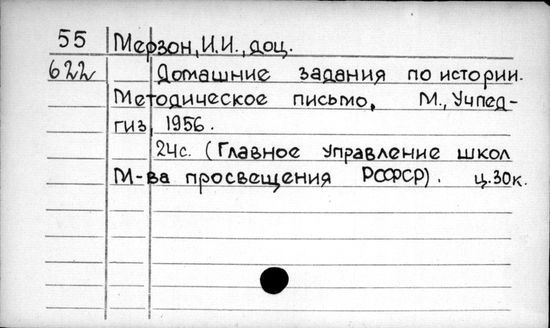 55 Мерзон, И.И., доц.
622 Домашние задания по истории.
Методическое письмо. М., Учпед-
гиз, 1956.
24с. (Главное управление школ
М-ва просвещения РСФСР). ц.30к.